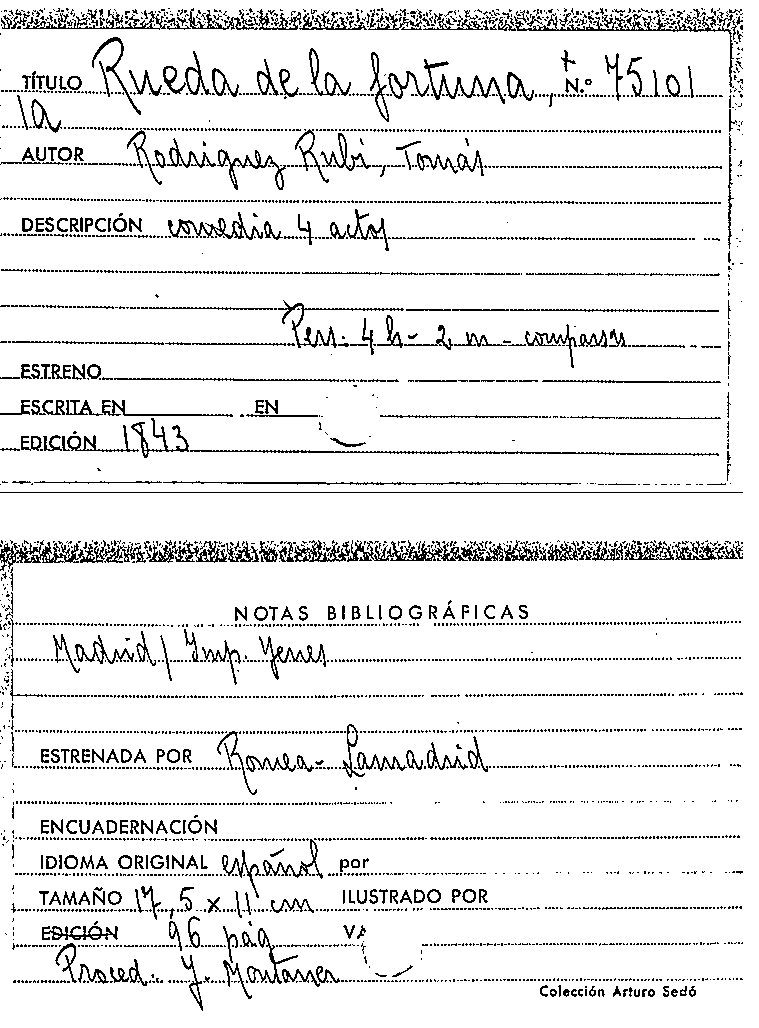 TÍTULO Rueda de la fortuna, N.º 75101
la
AUTOR Rodriguez Rubí, Tomás
DESCRIPCIÓN comedia 4 actos
Pers: 4 h - 2 m - comparsas
ESTRENO
ESCRITA EN EN
EDICIÓN 1843
NOTAS BIBLIOGRÁFICAS
Madrid / Imp. Yenes
ESTRENADA POR Romea - Lamadrid
ENCUADERNACIÓN
IDIOMA ORIGINAL español por
TAMAÑO 17,5 x 11 cm ILUSTRADO POR
EDICIÓN 96 pág
Proced. Y. Montaner
Colección Arturo Sedó